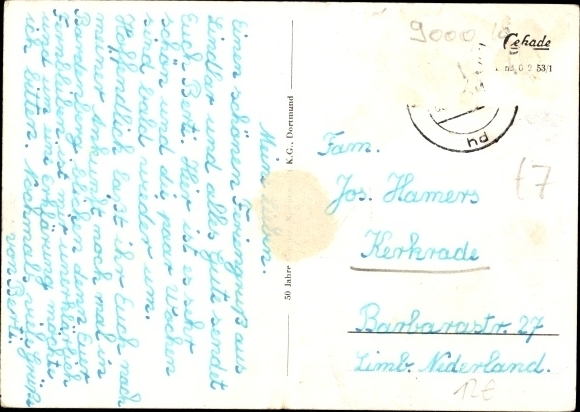 Meine Lieben.
Einen schönen Feriengruß aus
Lindlar und alles Gute sendet
Euch Berti. Hier ist es sehr
schön und die paar Wochen
sind bald wieder um.
Hoffendlich lasst ihr Euch nach
meiner Ankunft noch mal in
blicken denn Euer
Fernbleiben ist mir unerklärlich
und um um Erklärung möchte
ich bitten. Nochmals viele Grüße
von Berti.
50 Jahre
K.G., Dortmund
9000
Cekade
6 2 53/1
hd
Fam.
Jos. Hamers
Kerkrade
Barbarastr. 27
Limb. Niederland.
17
12€